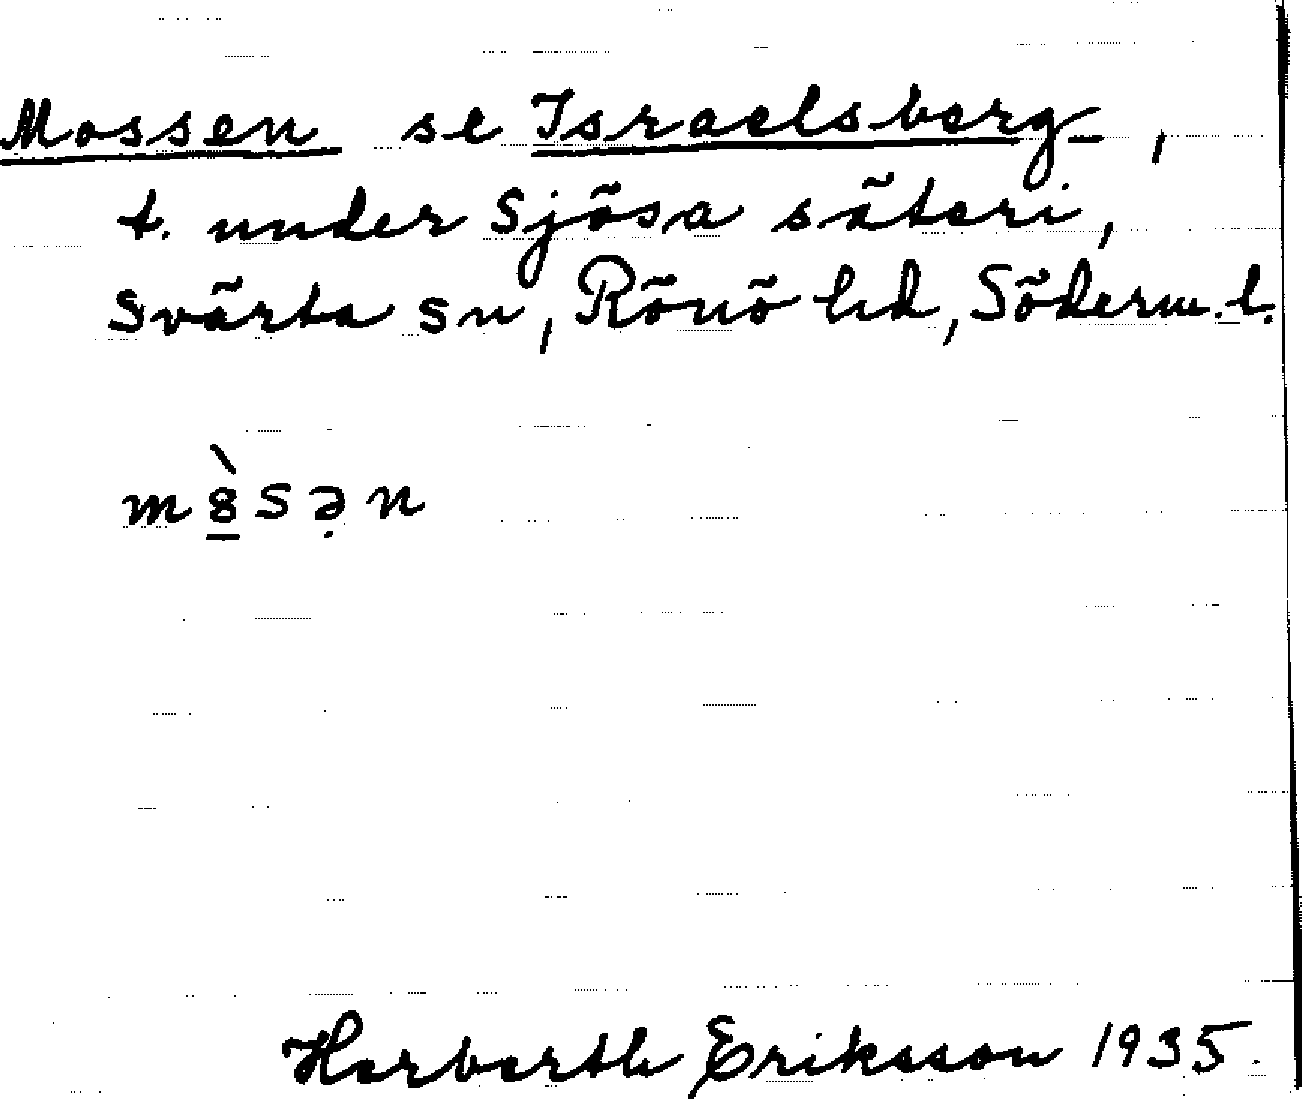 Mossen se Israelsberg,
t. under Sjösa säteri,
Svärta sn, Rönö hd, Söderm. l.
m8̠̀sə̣n
Herberth Eriksson 1935.